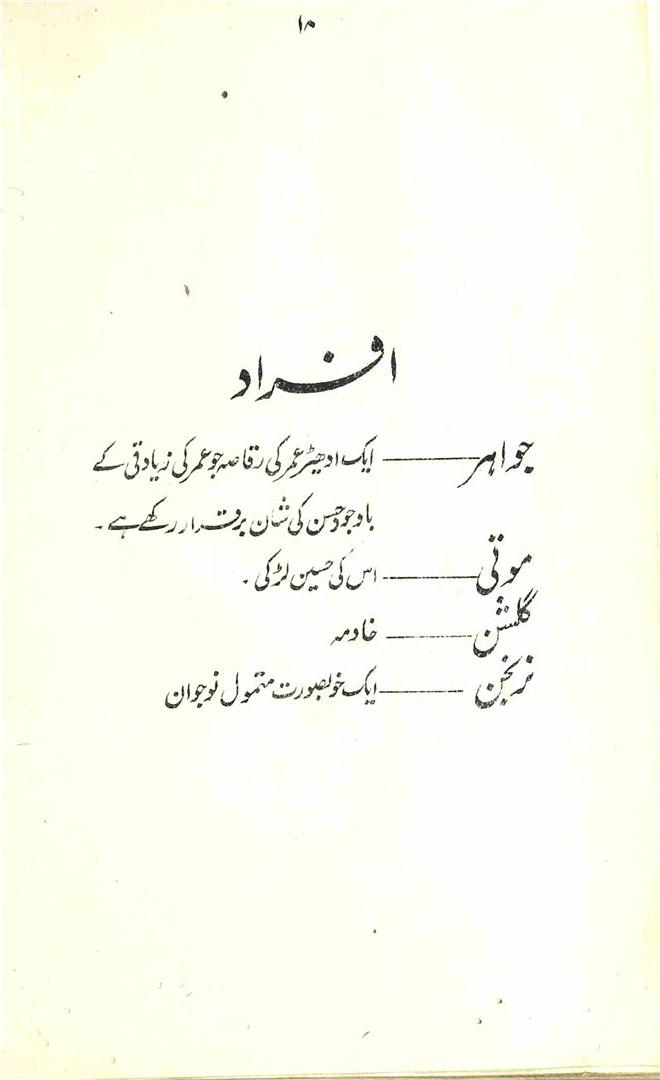 ۱۸
افراد
جواہر ——— ایک ادھیڑ عمر کی رقاصہ جو عمر کی زیادتی کے
باوجود حسن کی شان برقرار رکھے ہے۔
موتی ——— اس کی حسین لڑکی۔
گلشن ——— خادمہ
نرنجن ——— ایک خوبصورت متمول نوجوان